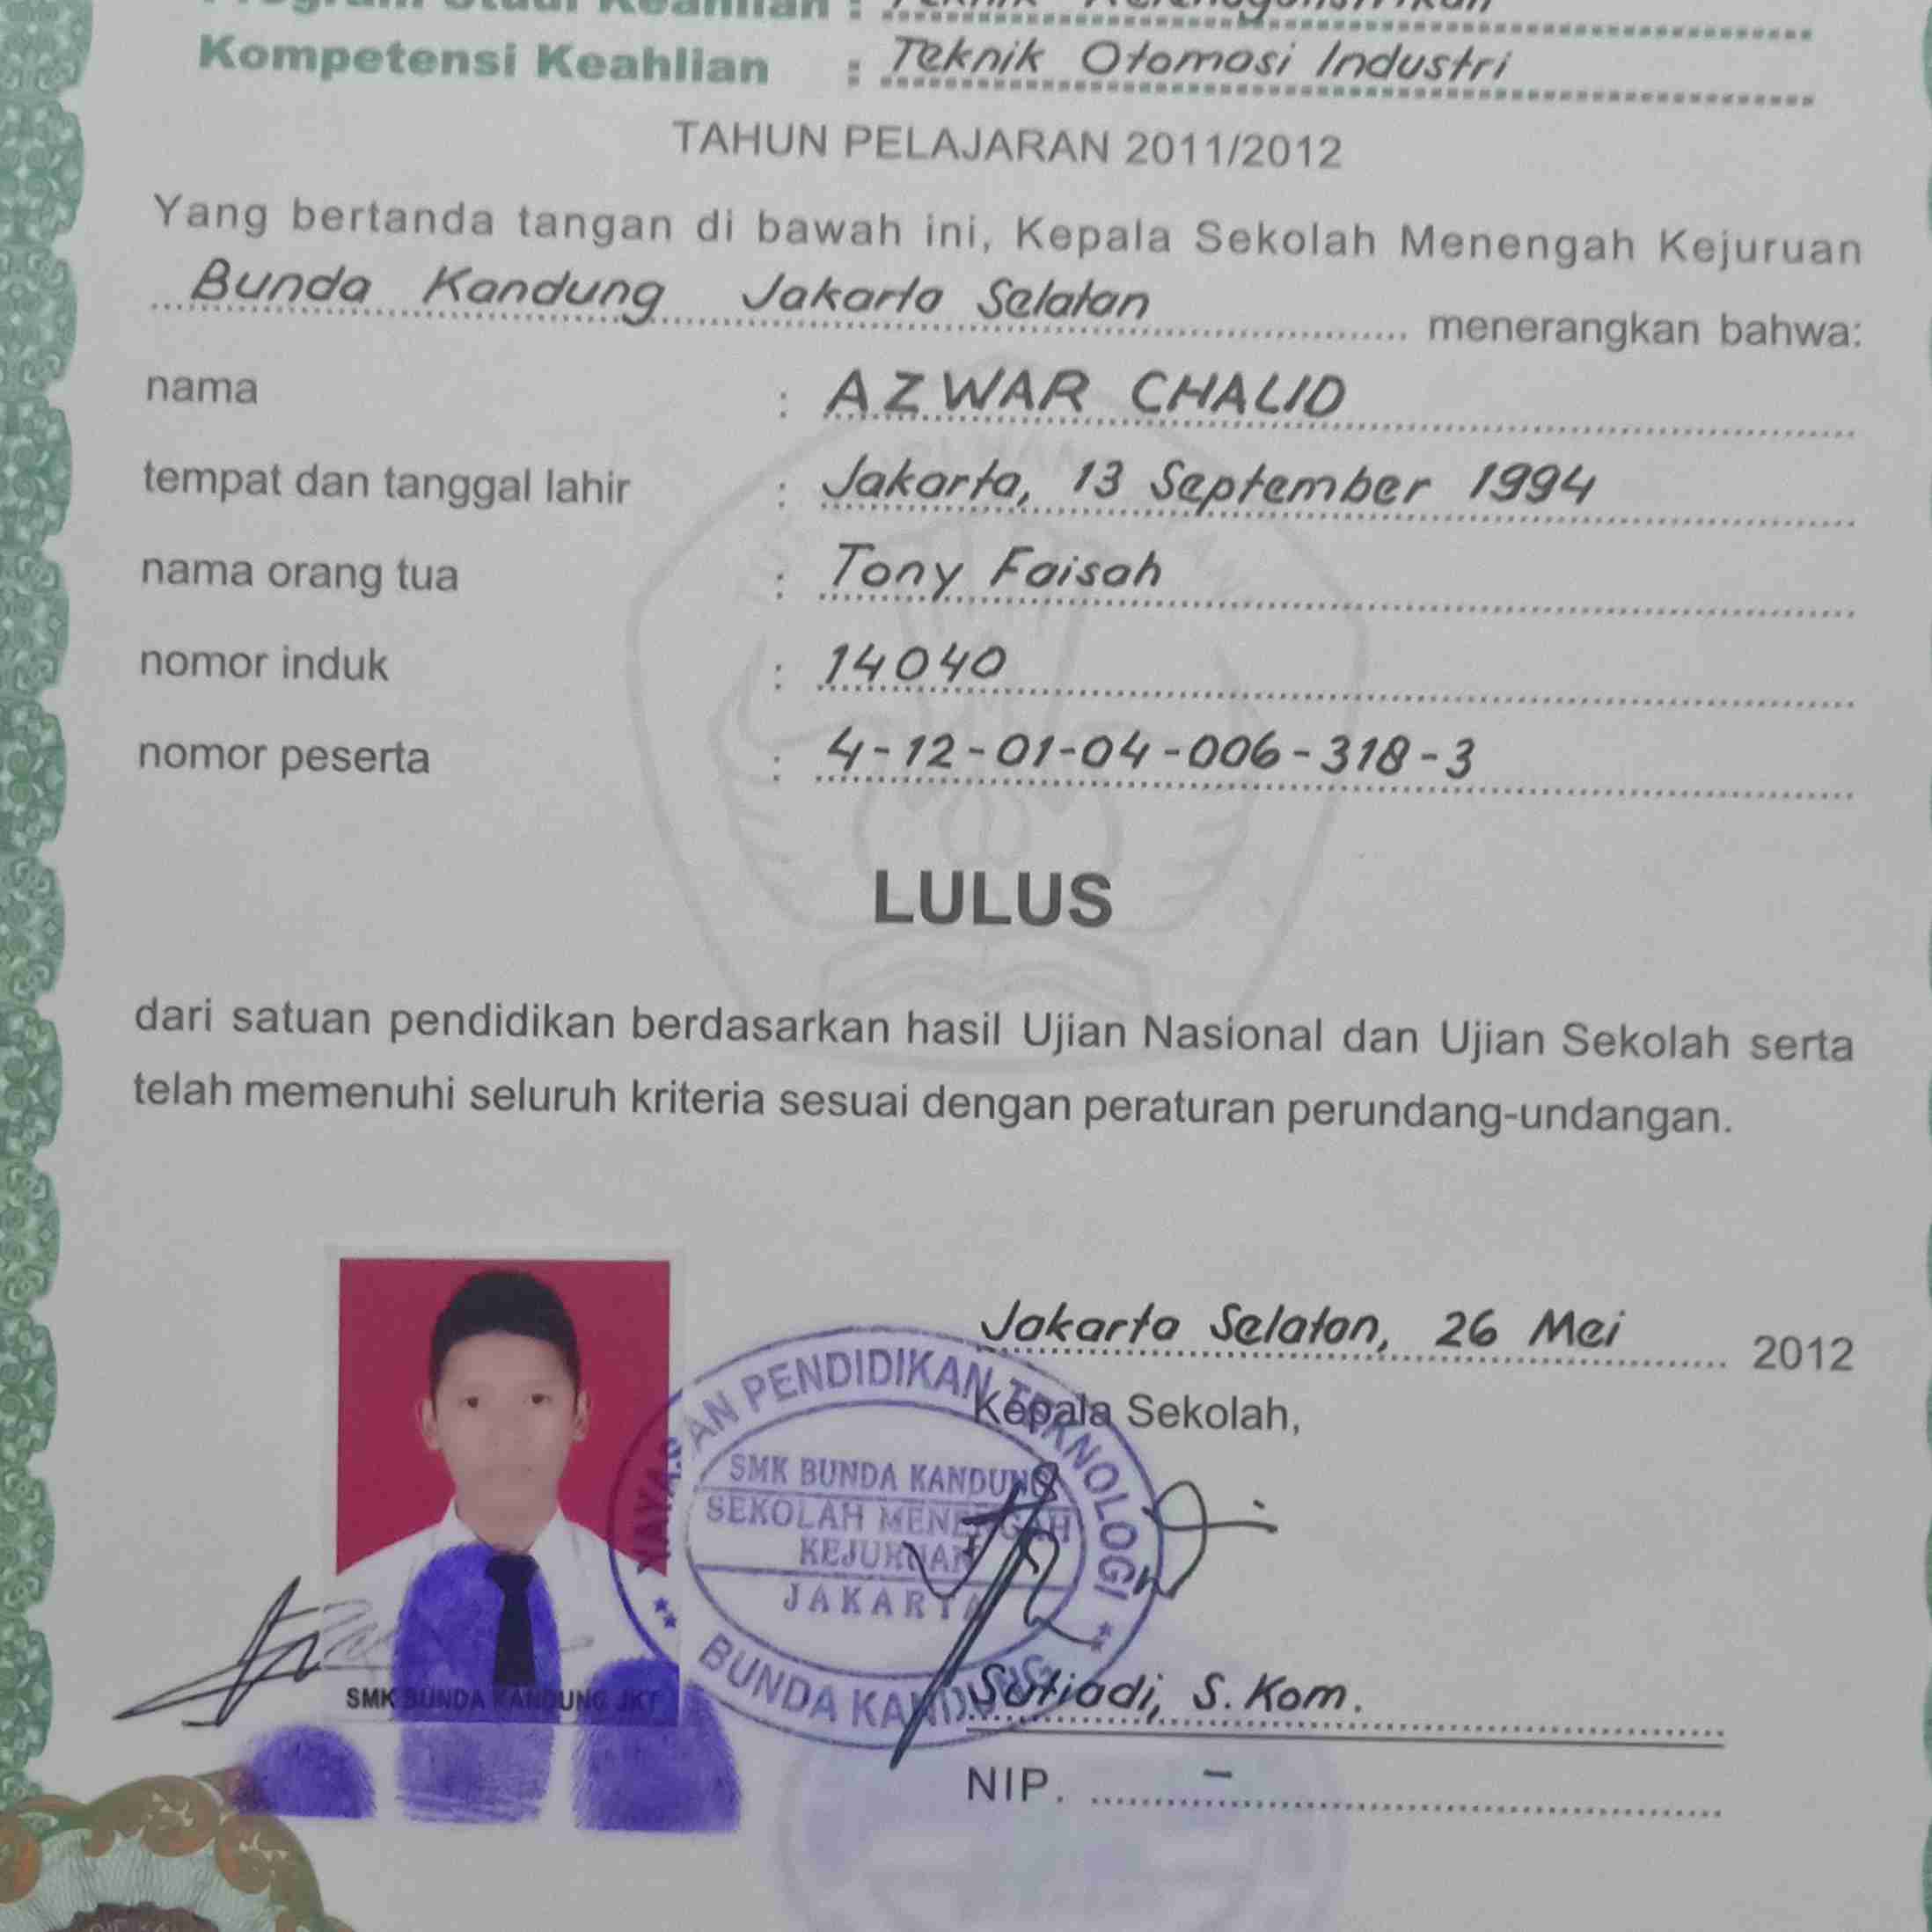 Program Studi Keahlian :
Kompetensi Keahlian : Teknik Otomasi Industri
TAHUN PELAJARAN 2011/2012
Yang bertanda tangan di bawah ini, Kepala Sekolah Menengah Kejuruan
Bunda Kandung Jakarta Selatan menerangkan bahwa:
nama : AZWAR CHALID
tempat dan tanggal lahir : Jakarta, 13 September 1994
nama orang tua : Tony Faisah
nomor induk : 14040
nomor peserta : 4-12-01-04-006-318-3
LULUS
dari satuan pendidikan berdasarkan hasil Ujian Nasional dan Ujian Sekolah serta
telah memenuhi seluruh kriteria sesuai dengan peraturan perundang-undangan.
Jakarta Selatan, 26 Mei 2012
Kepala Sekolah,
YAYASAN PENDIDIKAN TEKNOLOGI
SMK BUNDA KANDUNG
SEKOLAH MENENGAH
KEJURUAN
JAKARTA
BUNDA KANDUNG
SMK BUNDA KANDUNG JKT
Sutiadi, S. Kom.
NIP. -